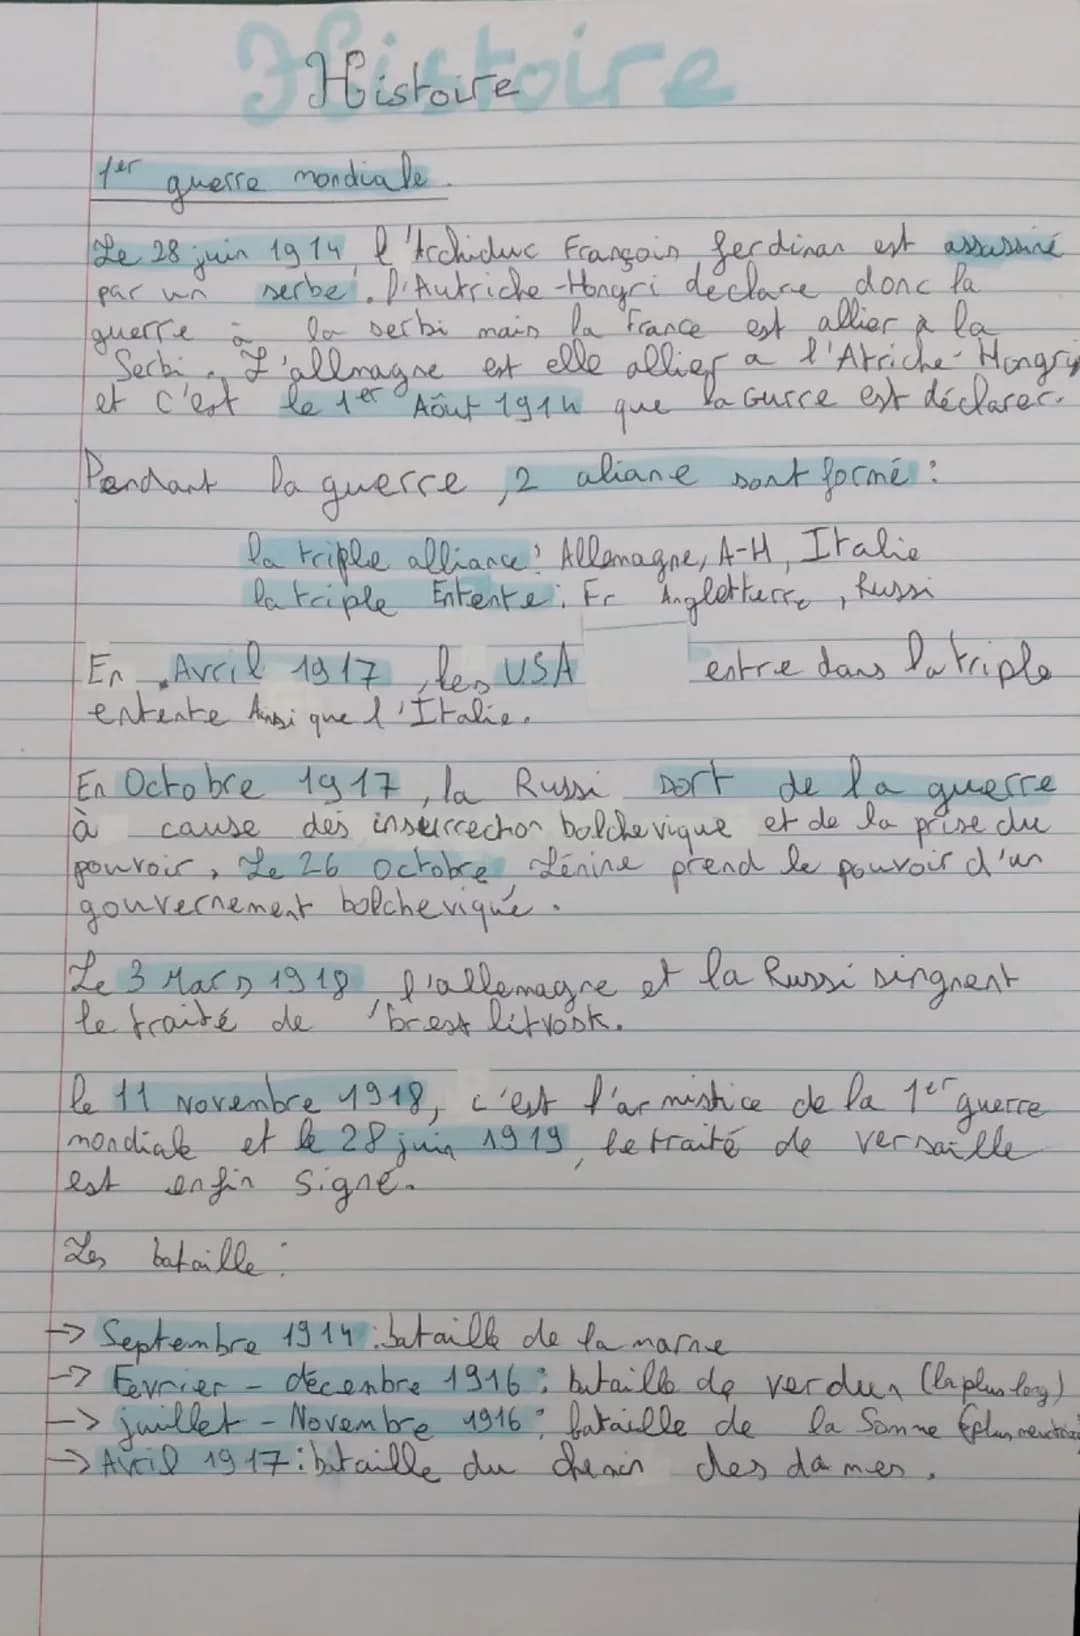 Histoire
Histoire
1er guerre mondiale.
Le 28 juin 1914, l'Archiduc François ferdinan est assassiné
par un serbe. l'Autriche-Hongri déclare donc la
guerre à la serbi mais la France est allier à la
Serbi. L'allmagne est elle allier a l'Atriche-Hongri
et c'est le 1er Août 1914 que la Gurre est déclarer.
Pendant la guerre, 2 aliane sont formé :
la triple alliance : Allemagne, A-H, Italie
la triple Entente : Fr Angletterre, Russi
En Avril 1917, les USA entre dans la triple
entente Ainsi que l'Italie.
En Octobre 1917, la Russi sort de la guerre
à cause des insurrection bolchevique et de la prise du
pouvoir, Le 26 octobre, Lénine prend le pouvoir d'un
gouvernement bolchevique.
Le 3 Mars 1918 l'allemagne et la Russi singnent
le traité de brest litvosk.
le 11 Novembre 1918, c'est l'armistice de la 1er guerre
mondiale et le 28 juin 1919, le traité de versaille
est enfin signé.
Les bataille :
→ Septembre 1914 : bataille de la marne
→ Fevrier - décenbre 1916 : bataille de verdun (la plus long)
→ juillet - Novembre 1916 : bataille de la Somme (plus
→ Avril 1917 : bataille du chemin des dames.